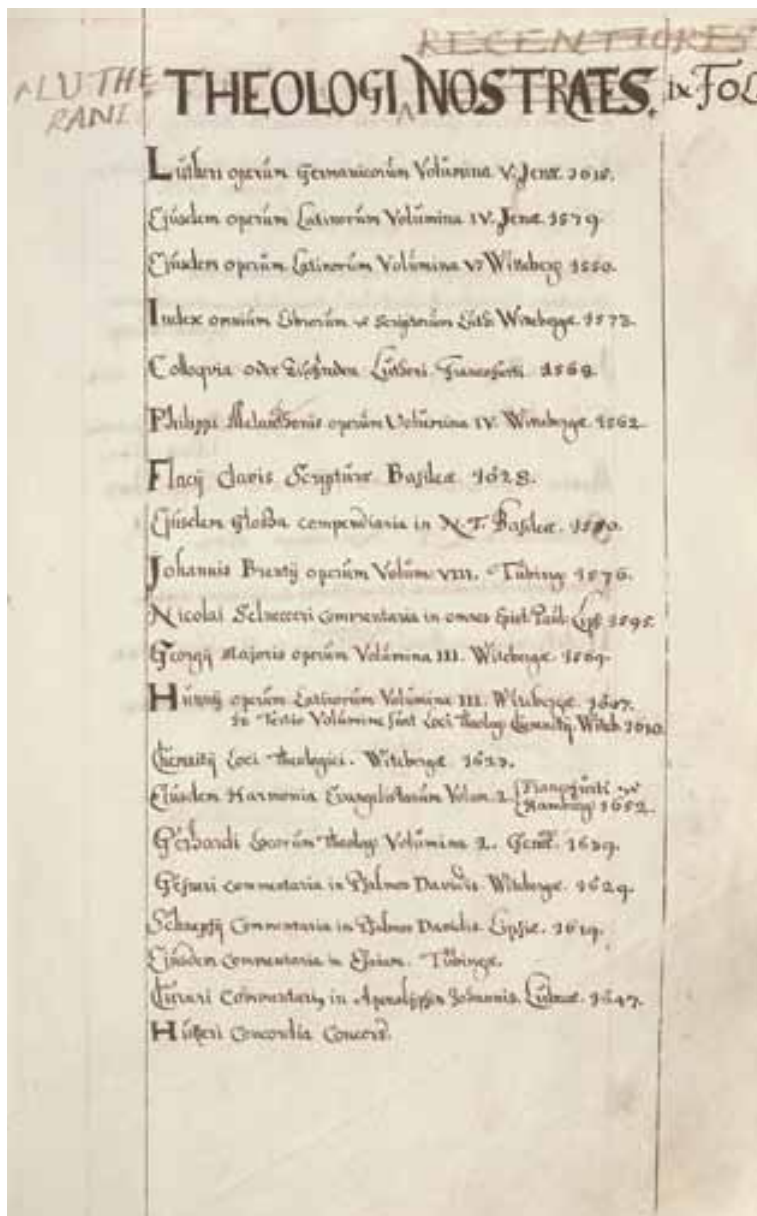 RECENTIORES
LUTHE
RANI
THEOLOGI NOSTRATES. in FOL
Lutheri operum Germanicorum Volumina V. Jenæ.
Ejusdem operum Latinorum Volumina IV. Jenæ 1579
Ejusdem operum Latinorum Volumina Witteberg 1550.
Index omnium Librorum Scriptorum Luth. 1573.
Colloquia oder Lutheri. Francofurti 1568
Philippi Melanthonis operum Volumina IV. Witebergæ. 1562
Flacij Clavis Scripturæ Basileæ 1628.
Ejusdem Glossa compendiaria in N. T. Basileæ.
Johannis Brentij operum Volum. VIII. Tübing 1576.
Nicolai Selnecceri commentaria in omnes Epist. Pauli Lips. 1595.
Georgij Majoris operum Volumina III. Witebergæ. 1569
Hunnij operum Latinorum Volumina III. Witebergæ. 1607.
in Tertio Volumine sunt Loci theolog. Chemnitij. Witeb. 1610.
Chemnitij Loci theologici. Witebergæ 1623.
Ejusdem Harmonia Evangelistarum Volum. 2. Francofurti
Hamburg 1652.
Gerhardi Locorum Theolog. Volumina 2. 1639.
Gesneri commentaria in Psalmos Davidis. Witebergæ. 1629.
Schnepfij Commentaria in Psalmos Davidis. Lipsiæ. 1619.
Ejusdem Commentaria in Esaiam. Tübingæ.
Commentarij in Apocalypsin Johannis. Lubecæ. 1647.
Hutteri Concordia Concors.